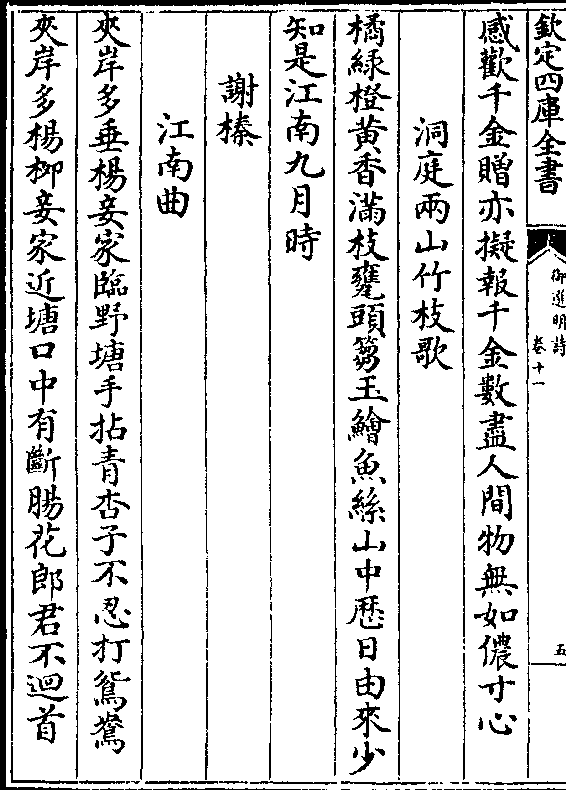 欽定四庫全書
御選明詩
卷十一
五
感歡千金贈亦擬報千金數盡人間物無如儂寸心
洞庭兩山竹枝歌
橘綠橙黃香滿枝甕頭篘玉鱠魚絲山中歷日由來少
知是江南九月時
謝榛
江南曲
夾岸多垂楊妾家臨野塘手拈青杏子不忍打鴛鴦
夾岸多楊柳妾家近塘口中有斷腸花郎君不迴首